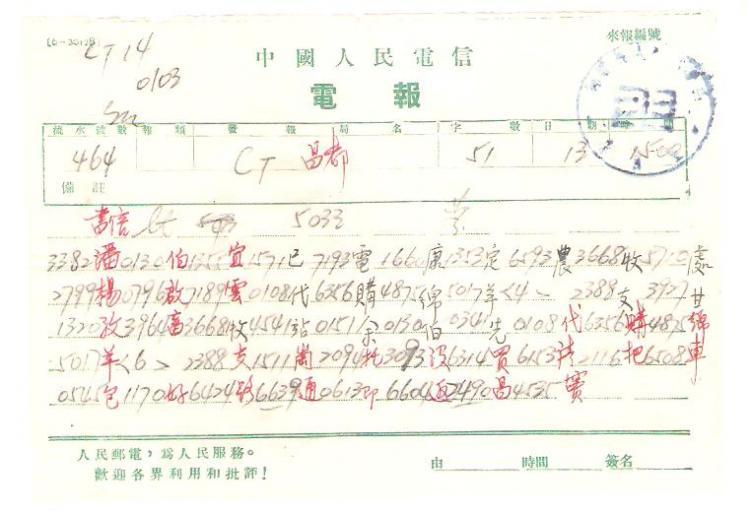 CT 14
來報編號
中國人民電信
0103
電報
流水號數 報類 發報局名 字數 日期
464 CT 昌都 51 13 1500
備註
書信 5032
3382潘0130伯135宜1571已7193電1660康1353定6593農3668收5710處
2799楊0796啟7189雲0108代6356購4875綿5017羊<4> 2388支3927甘
1320孜3964畜3668收4541站0151余0130伯0341先0108代6356購4875綿
5017羊<6> 2388支15112094托3093沒6314買6153 2116把6508車
0545包1170好6424路6639通0613即6604返2490昌4535竇
人民郵電，為人民服務。
歡迎各界利用和批評！
由 時間 簽名